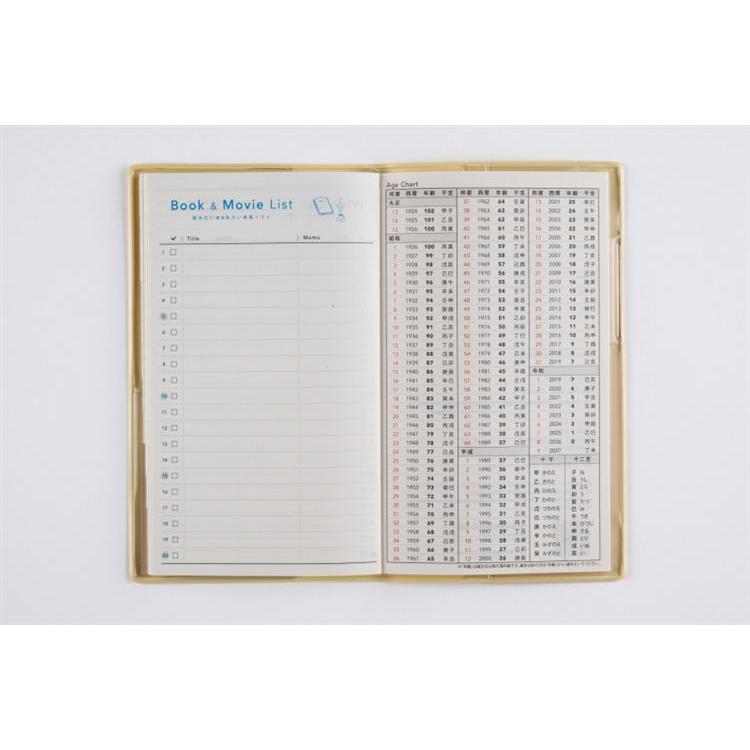 Book & Movie List
読みたい本&みたい映画リスト
✓ Title Memo
1
2
3
4
5
6
7
8
9
10
11
12
13
14
15
16
17
18
19
20
Age Chart
邦暦 西暦 年齢 干支
大正
13 1924 102 甲子
14 1925 101 乙丑
15 1926 100 丙寅
昭和
1 1926 100 丙寅
2 1927 99 丁卯
3 1928 98 戊辰
4 1929 97 己巳
5 1930 96 庚午
6 1931 95 辛未
7 1932 94 壬申
8 1933 93 癸酉
9 1934 92 甲戌
10 1935 91 乙亥
11 1936 90 丙子
12 1937 89 丁丑
13 1938 88 戊寅
14 1939 87 己卯
15 1940 86 庚辰
16 1941 85 辛巳
17 1942 84 壬午
18 1943 83 癸未
19 1944 82 甲申
20 1945 81 乙酉
21 1946 80 丙戌
22 1947 79 丁亥
23 1948 78 戊子
24 1949 77 己丑
25 1950 76 庚寅
26 1951 75 辛卯
27 1952 74 壬辰
28 1953 73 癸巳
29 1954 72 甲午
30 1955 71 乙未
31 1956 70 丙申
32 1957 69 丁酉
33 1958 68 戊戌
34 1959 67 己亥
35 1960 66 庚子
36 1961 65 辛丑
邦暦 西暦 年齢 干支
37 1962 64 壬寅
38 1963 63 癸卯
39 1964 62 甲辰
40 1965 61 乙巳
41 1966 60 丙午
42 1967 59 丁未
43 1968 58 戊申
44 1969 57 己酉
45 1970 56 庚戌
46 1971 55 辛亥
47 1972 54 壬子
48 1973 53 癸丑
49 1974 52 甲寅
50 1975 51 乙卯
51 1976 50 丙辰
52 1977 49 丁巳
53 1978 48 戊午
54 1979 47 己未
55 1980 46 庚申
56 1981 45 辛酉
57 1982 44 壬戌
58 1983 43 癸亥
59 1984 42 甲子
60 1985 41 乙丑
61 1986 40 丙寅
62 1987 39 丁卯
63 1988 38 戊辰
64 1989 37 己巳
平成
1 1989 37 己巳
2 1990 36 庚午
3 1991 35 辛未
4 1992 34 壬申
5 1993 33 癸酉
6 1994 32 甲戌
7 1995 31 乙亥
8 1996 30 丙子
9 1997 29 丁丑
10 1998 28 戊寅
11 1999 27 己卯
12 2000 26 庚辰
邦暦 西暦 年齢 干支
13 2001 25 辛巳
14 2002 24 壬午
15 2003 23 癸未
16 2004 22 甲申
17 2005 21 乙酉
18 2006 20 丙戌
19 2007 19 丁亥
20 2008 18 戊子
21 2009 17 己丑
22 2010 16 庚寅
23 2011 15 辛卯
24 2012 14 壬辰
25 2013 13 癸巳
26 2014 12 甲午
27 2015 11 乙未
28 2016 10 丙申
29 2017 9 丁酉
30 2018 8 戊戌
31 2019 7 己亥
令和
1 2019 7 己亥
2 2020 6 庚子
3 2021 5 辛丑
4 2022 4 壬寅
5 2023 3 癸卯
6 2024 2 甲辰
7 2025 1 乙巳
8 2026 0 丙午
9 2027 丁未
十干 十二支
甲 きのえ 子 ね
乙 きのと 丑 うし
丙 ひのえ 寅 とら
丁 ひのと 卯 う
戊 つちのえ 辰 たつ
己 つちのと 巳 み
庚 かのえ 午 うま
辛 かのと 未 ひつじ
壬 みずのえ 申 さる
癸 みずのと 酉 とり
戌 いぬ
亥 い